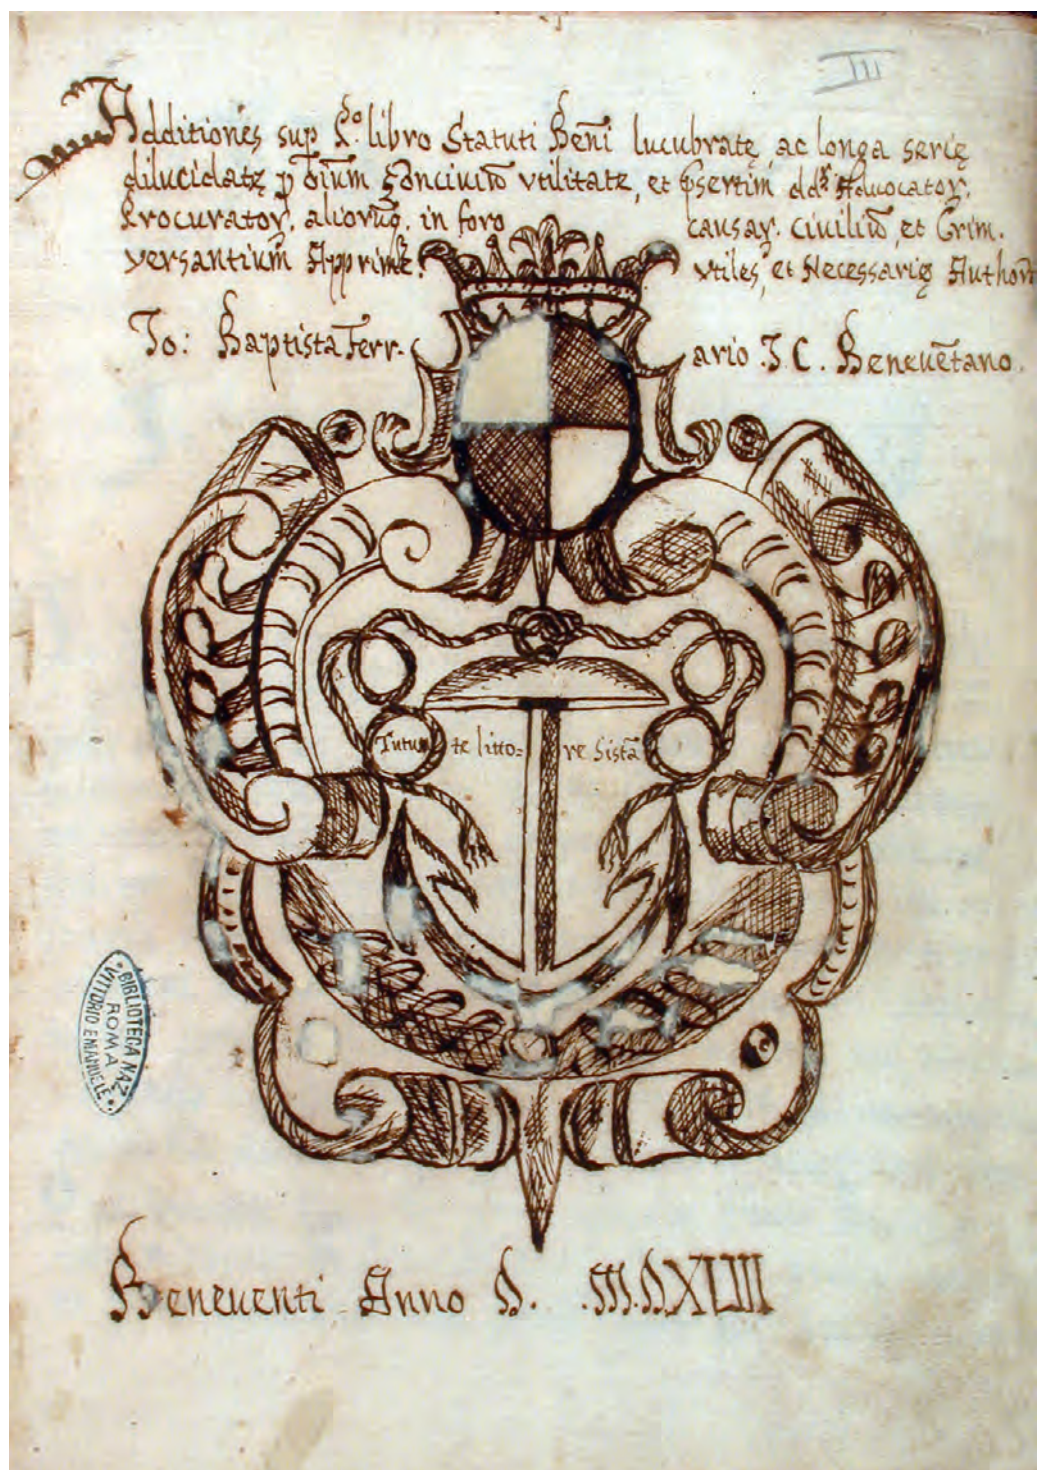 III
Additiones sup P.º libro Statuti Beñi lucubratę, ac longa serię
dilucidatę p oĩum Conciuiũ vtilitate, et p̃sertim dd. Aduocator.
Procurator. aliorũq. in foro causar. ciuiliũ, et Crim.
versantium Apprimè. vtiles, et Necessarię Authore
Io: Baptista Ferr- ario I. C. Beneuẽtano.
Tutum te litto= re Sistã
BIBLIOTECA NAZ.
ROMA
VITTORIO EMANUELE
Beneuenti Anno D. M.DXLIII